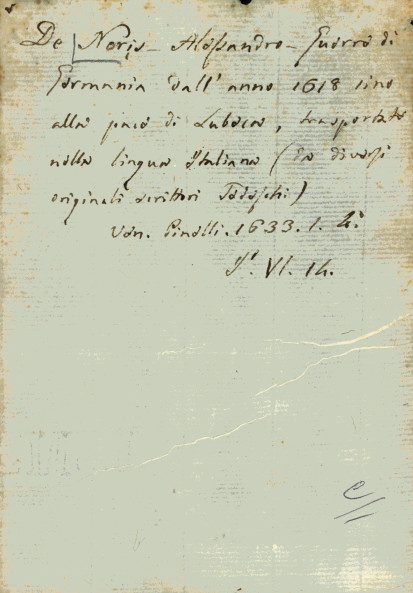 De Noris - Alessandro - Guerre di
Germania dall' anno 1618 sino
alla pace di Lubeca, trasportate
nella lingua Italiana (da diversi
originali scrittori Tedeschi)
Ven. Pinelli. 1633. 1. 4.°
I. VI. 14.